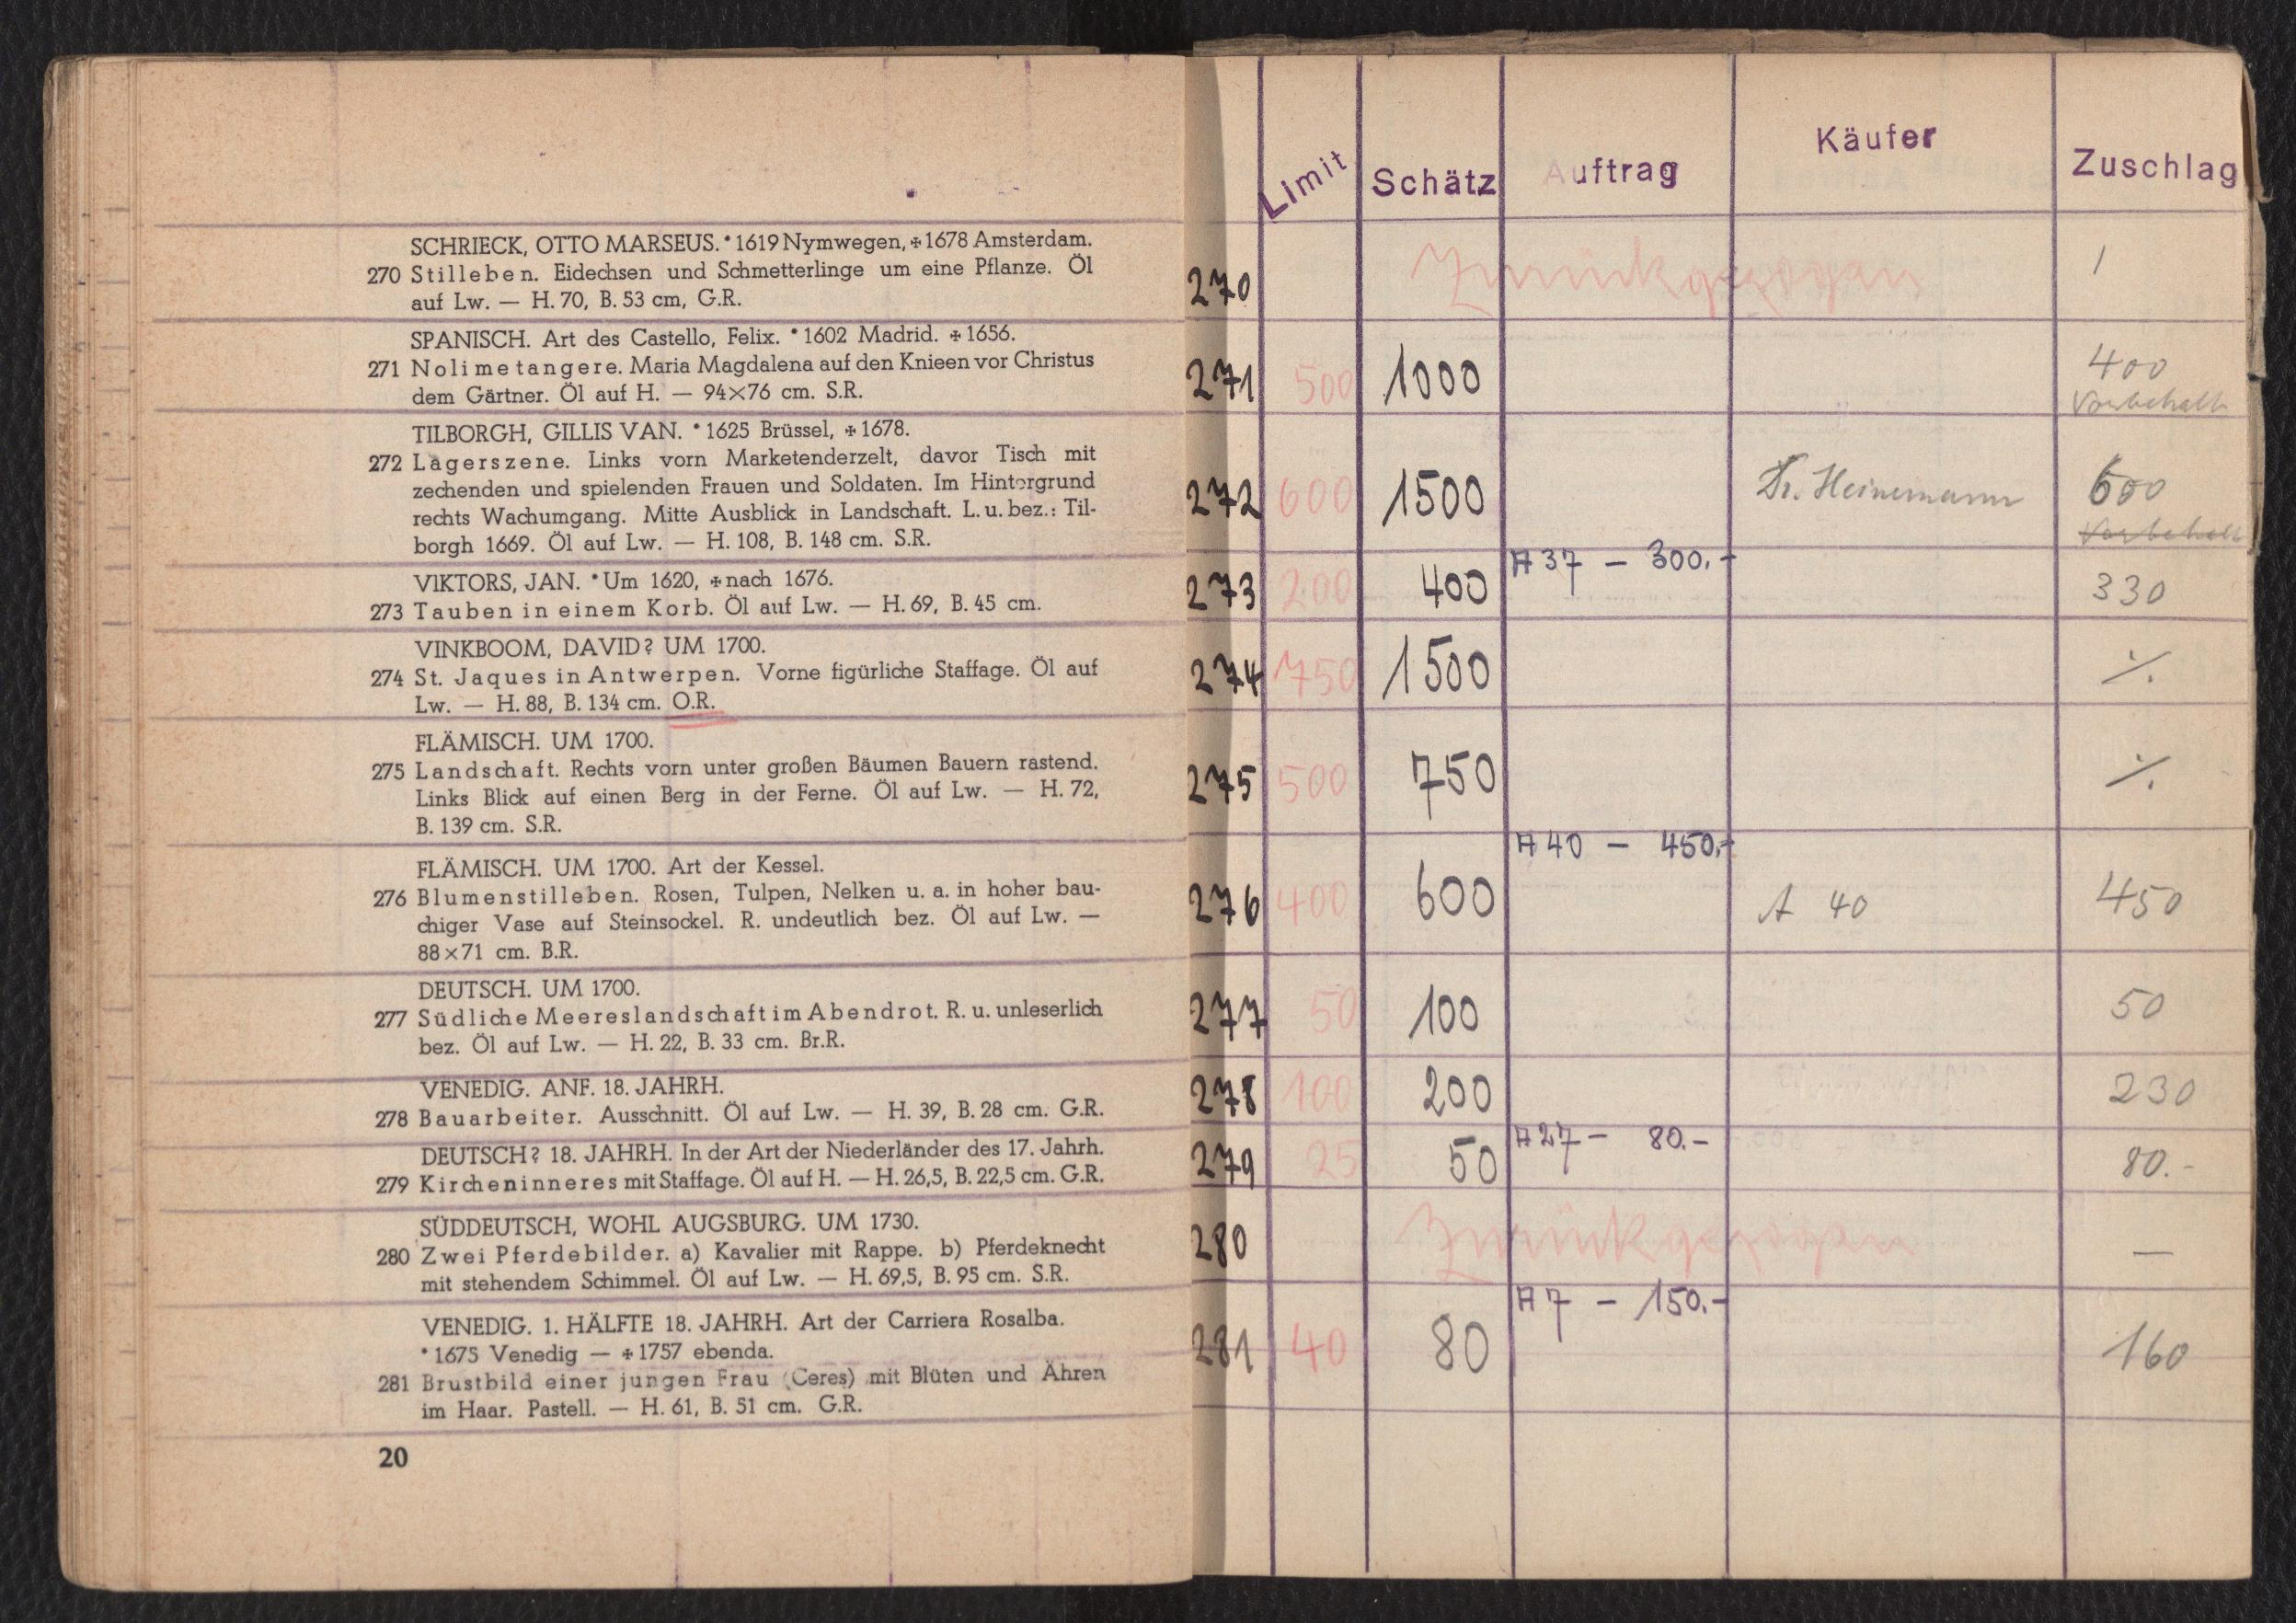 SCHRIECK, OTTO MARSEUS. *1619 Nymwegen, ✠1678 Amsterdam.
270 Stilleben. Eidechsen und Schmetterlinge um eine Pflanze. Öl
auf Lw. — H. 70, B. 53 cm, G.R.
SPANISCH. Art des Castello, Felix. *1602 Madrid. ✠1656.
271 Noli me tangere. Maria Magdalena auf den Knieen vor Christus
dem Gärtner. Öl auf H. — 94×76 cm. S.R.
TILBORGH, GILLIS VAN. *1625 Brüssel, ✠1678.
272 Lagerszene. Links vorn Marketenderzelt, davor Tisch mit
zechenden und spielenden Frauen und Soldaten. Im Hintergrund
rechts Wachumgang. Mitte Ausblick in Landschaft. L. u. bez.: Til-
borgh 1669. Öl auf Lw. — H. 108, B. 148 cm. S.R.
VIKTORS, JAN. *Um 1620, ✠nach 1676.
273 Tauben in einem Korb. Öl auf Lw. — H. 69, B. 45 cm.
VINKBOOM, DAVID? UM 1700.
274 St. Jaques in Antwerpen. Vorne figürliche Staffage. Öl auf
Lw. — H. 88, B. 134 cm. O.R.
FLÄMISCH. UM 1700.
275 Landschaft. Rechts vorn unter großen Bäumen Bauern rastend.
Links Blick auf einen Berg in der Ferne. Öl auf Lw. — H. 72,
B. 139 cm. S.R.
FLÄMISCH. UM 1700. Art der Kessel.
276 Blumenstilleben. Rosen, Tulpen, Nelken u. a. in hoher bau-
chiger Vase auf Steinsockel. R. undeutlich bez. Öl auf Lw. —
88×71 cm. B.R.
DEUTSCH. UM 1700.
277 Südliche Meereslandschaft im Abendrot. R. u. unleserlich
bez. Öl auf Lw. — H. 22, B. 33 cm. Br.R.
VENEDIG. ANF. 18. JAHRH.
278 Bauarbeiter. Ausschnitt. Öl auf Lw. — H. 39, B. 28 cm. G.R.
DEUTSCH? 18. JAHRH. In der Art der Niederländer des 17. Jahrh.
279 Kircheninneres mit Staffage. Öl auf H. — H. 26,5, B. 22,5 cm. G.R.
SÜDDEUTSCH, WOHL AUGSBURG. UM 1730.
280 Zwei Pferdebilder. a) Kavalier mit Rappe. b) Pferdeknecht
mit stehendem Schimmel. Öl auf Lw. — H. 69,5, B. 95 cm. S.R.
VENEDIG. 1. HÄLFTE 18. JAHRH. Art der Carriera Rosalba.
*1675 Venedig — ✠1757 ebenda.
281 Brustbild einer jungen Frau (Ceres) mit Blüten und Ähren
im Haar. Pastell. — H. 61, B. 51 cm. G.R.
20
Limit Schätz Auftrag Käufer Zuschlag
270 Zurückgezogen /
271 500 1000 400
Vorbehalt
272 600 1500 Dr. Heinemann 600
Vorbehalt
A 37 – 300.-
273 200 400 330
274 750 1500 ·/.
275 500 750 ·/.
A 40 – 450.-
276 400 600 A 40 450
277 50 100 50
278 100 200 230
A 27 – 80.-
279 25 50 80.-
280 Zurückgezogen —
A 7 – 150.-
281 40 80 160